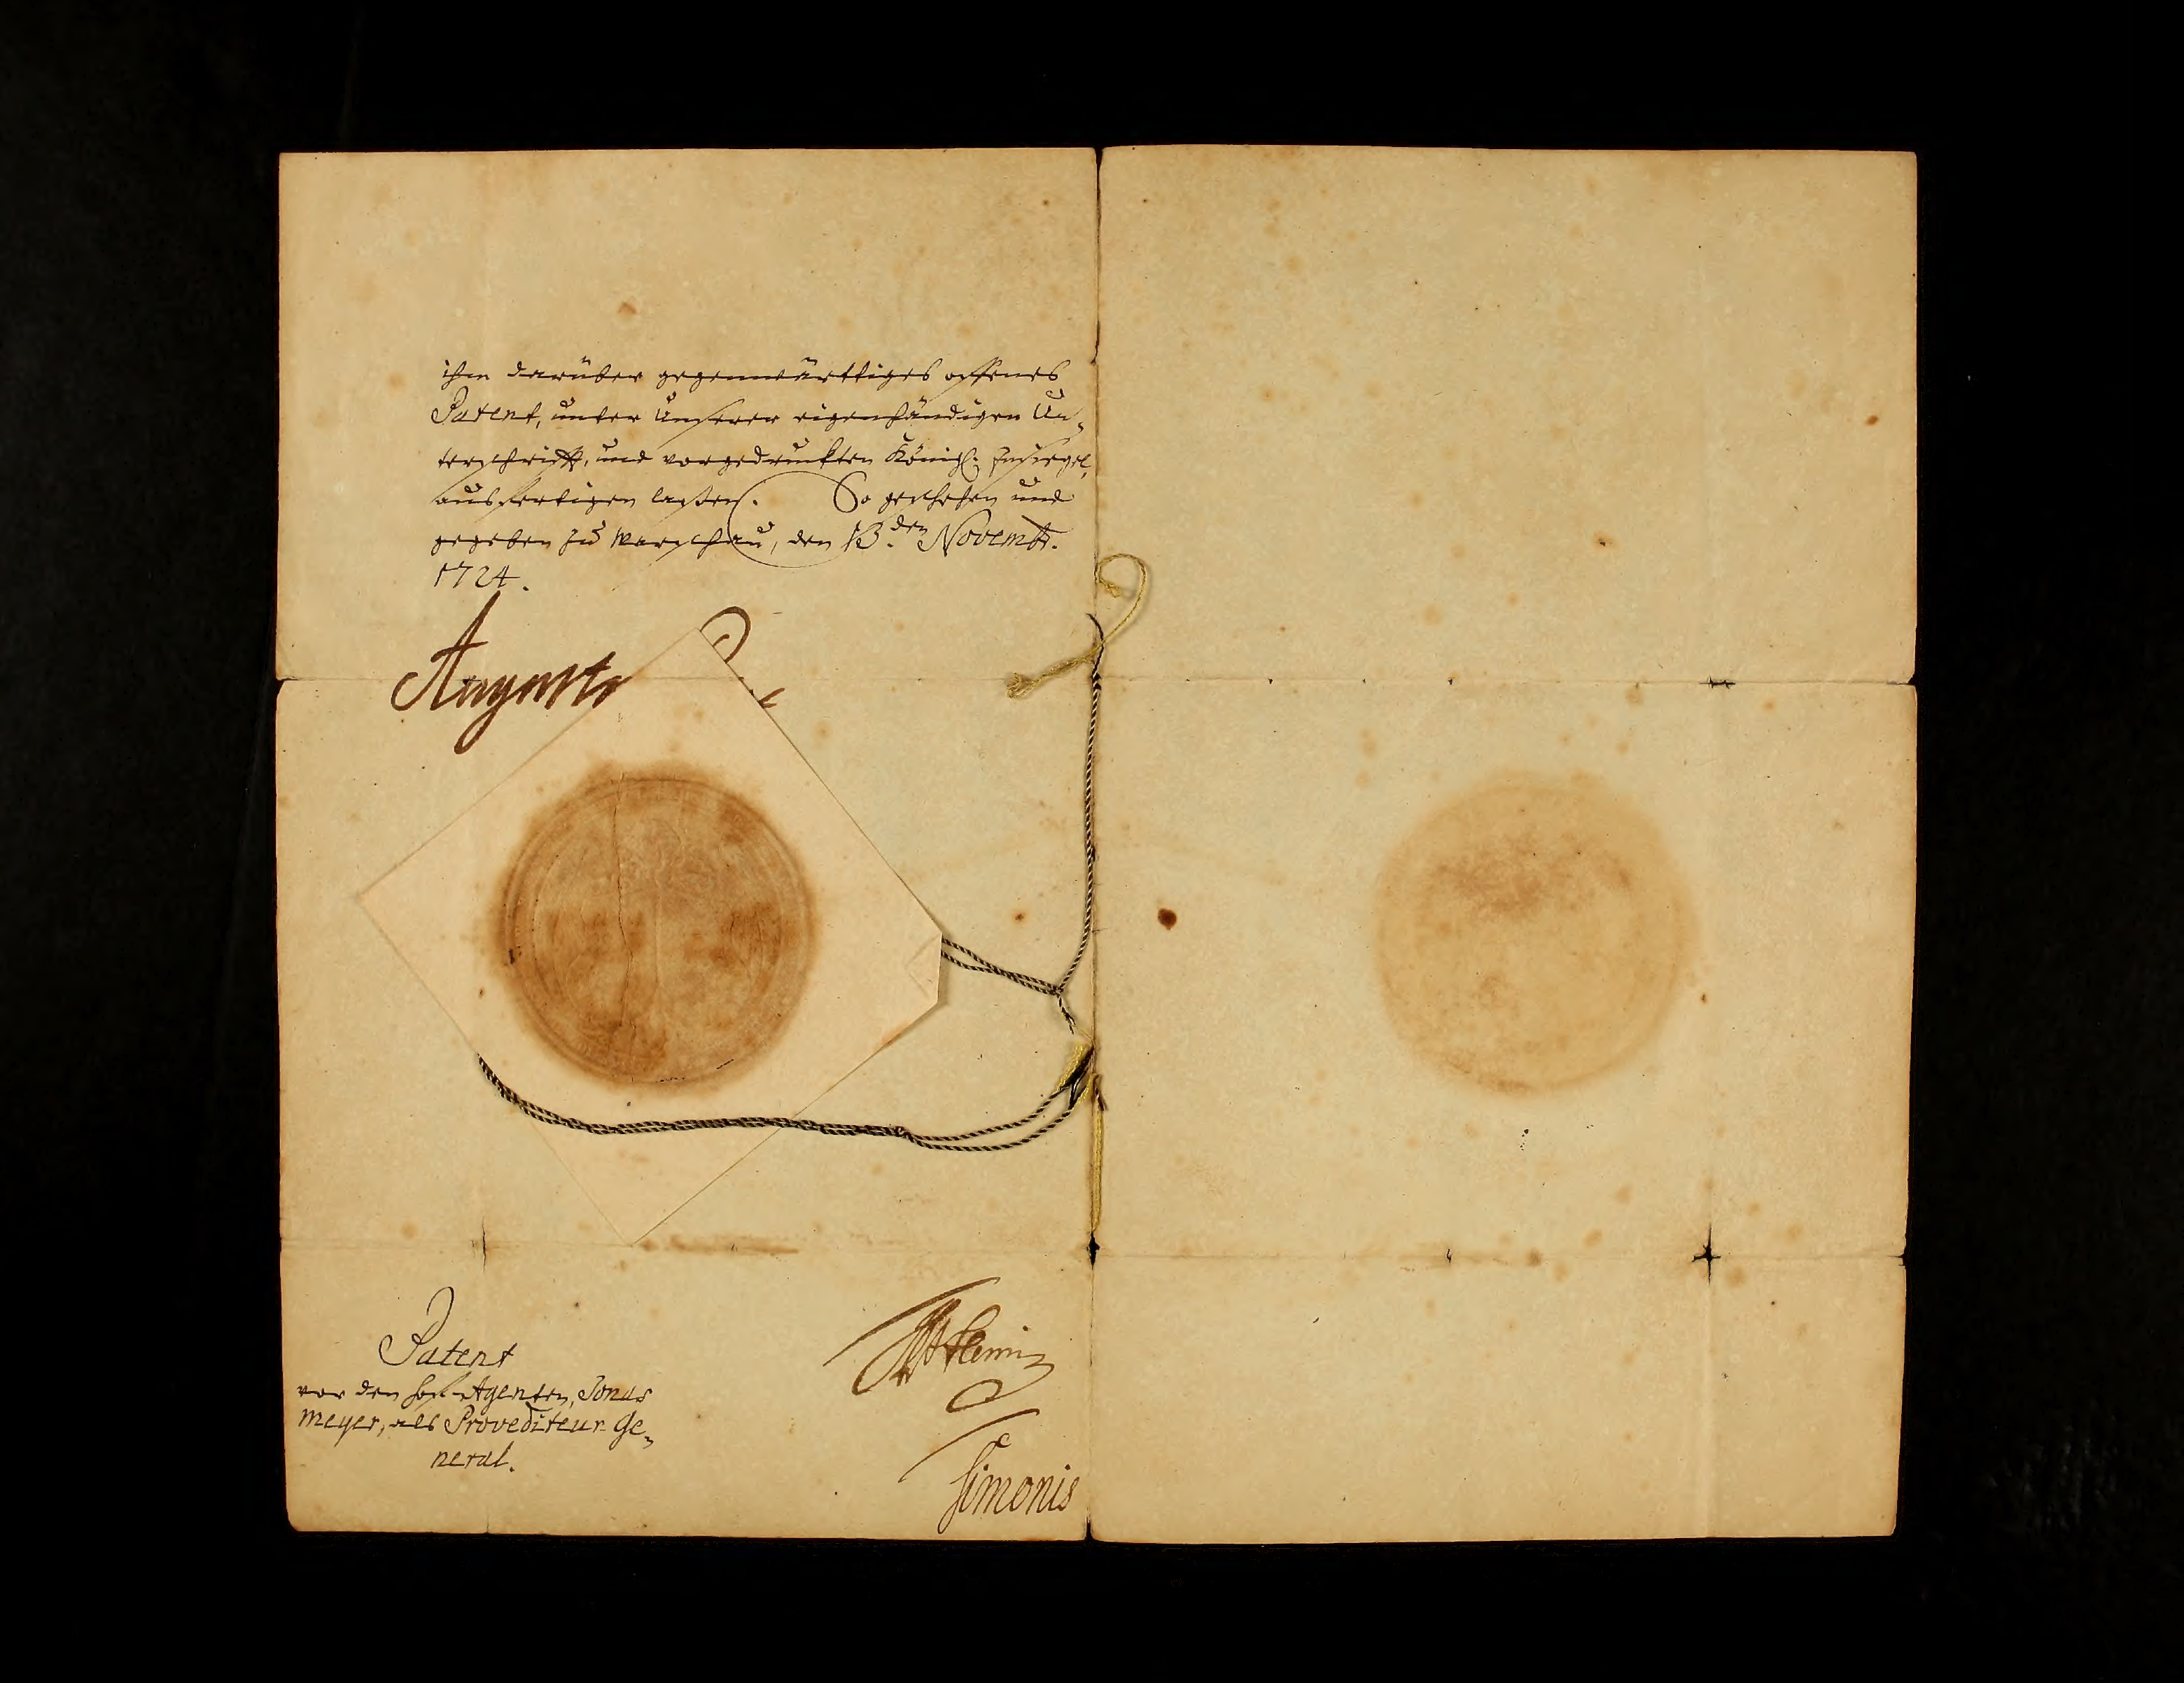 ihm darüber gegenwärttiges offenes
Patent, unter Unserer eigenhändigen Un-
terschrifft, und vorgedruckten Königl. Insiegel,
ausfertigen laßen. So geschehen und
gegeben zu Warschau, den 13.den Novembr.
1724.
Augustus
Patent
vor den Hof-Agenten, Jonas
Meyer, als Provediteur Ge-
neral.
Simonis